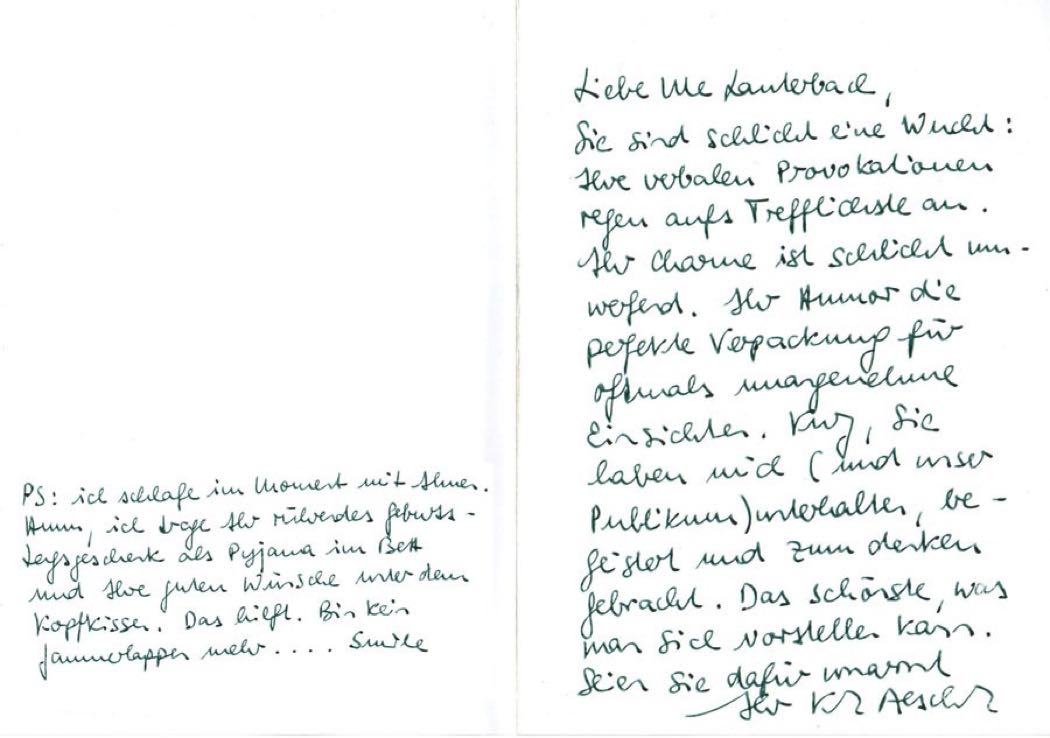 Liebe Ute Lauterbach,
Sie sind schlicht eine Wucht:
Ihre verbalen Provokationen
regen aufs Trefflichste an.
Ihr Charme ist schlicht um-
werfend. Ihr Humor die
perfekte Verpackung für
oftmals unangenehme
Einsichten. Kurz, Sie
haben mich (und unser
Publikum) unterhalten, be-
geistert und zum denken
gebracht. Das schönste, was
man sich vorstellen kann.
Seien Sie dafür umarmt
Ihr Kurt Aeschb
PS: ich schlafe im Moment mit Ihnen.
Hmm, ich trage Ihr rührendes Geburts-
tagsgeschenk als Pyjama im Bett
und Ihre guten Wünsche unter dem
Kopfkissen. Das hilft. Bin kein
Jammerlappen mehr.... Smile